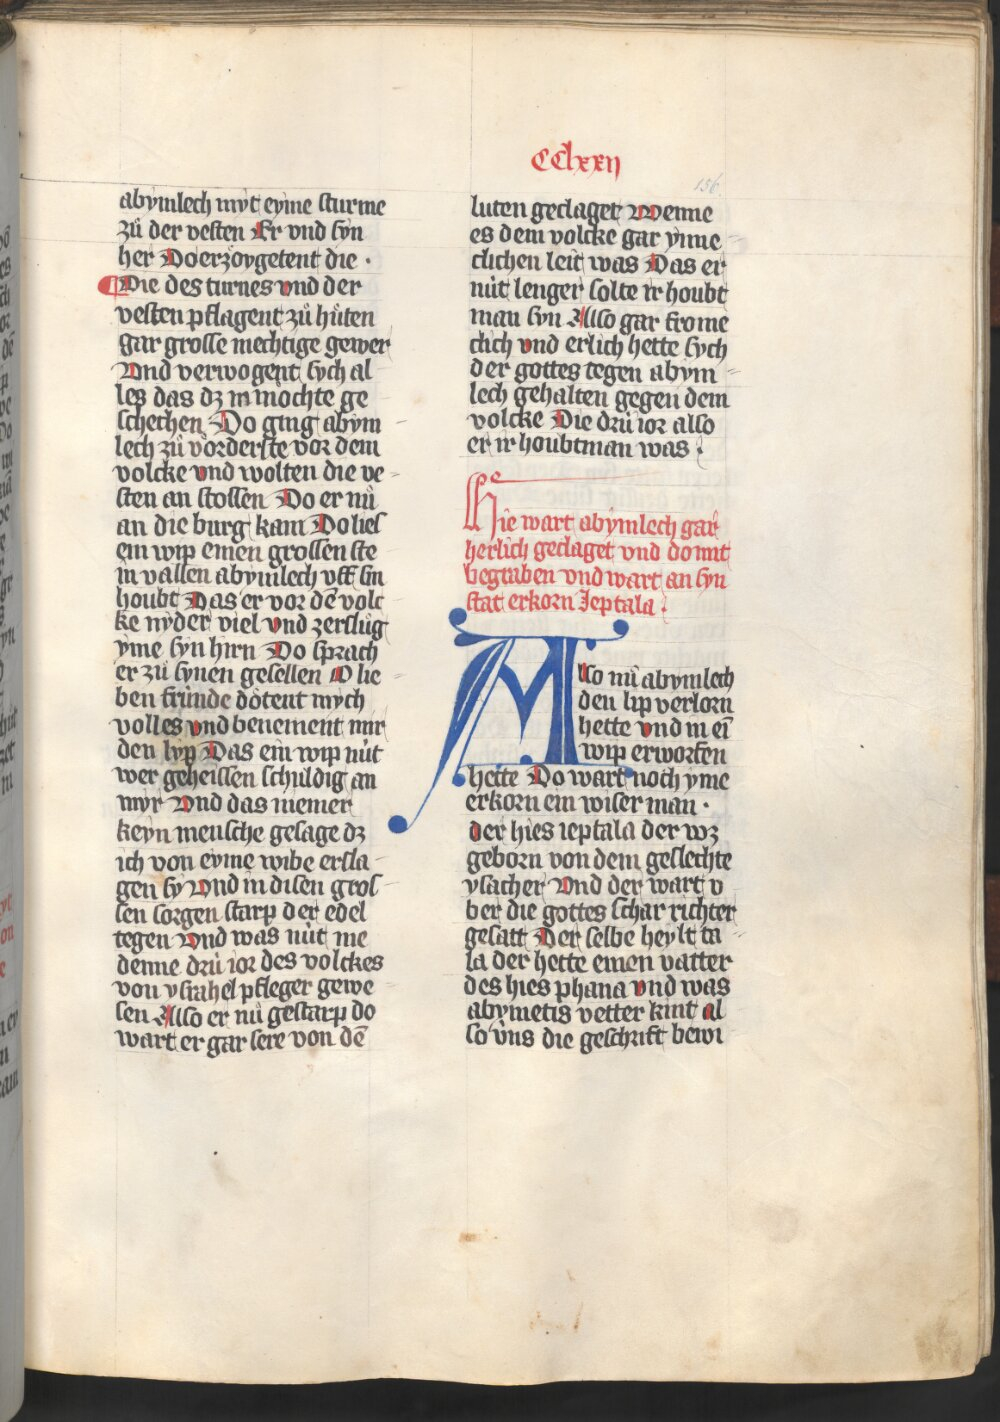 CClxxij
156.
abymlech myt eyme sturme
zů der vesten Er vnd syn
her Do erzoygetent die ·
Die des turnes vnd der
vesten pflagent zů hůten
gar grosse mechtige gewer
Vnd verwogent sych al
les das dz in mochte ge
schechen Do ging abym
lech zů vorderste vor dem
volcke vnd wolten die ve
sten an stossen Do er nů
an die burg kam Do lies
ein wip einen grossen ste
in vallen abymlech vff sin
houbt Das er vor dē volc
ke nyder viel vnd zerslůg
yme syn hirn Do sprach
er zů synen gesellen O lie
ben fründe dötent mych
volles vnd benement mir
den lyp Das ein wip nüt
wer geheissen schuldig an
myr Vnd das niemer
keyn mensche gesage dz
ich von eyme wibe ersla
gen sy Vnd in disen gros
sen sorgen starp der edel
tegen Vnd was nüt me
denne drü ior des volckes
von ysrahel pfleger gewe
sen Also er nů gestarp do
wart er gar sere von dē
luten geclaget Wenne
es dem volcke gar ynne
clichen leit was Das er
nüt lenger solte ir houbt
man syn Also gar frome
clich vnd erlich hette sych
der gottes tegen abym
lech gehalten gegen dem
volcke Die drü ior also
er ir houbtman was
Hie wart abymlech gar
herlich geclaget vnd do mit
begraben vnd wart an syn
stat erkorn Jeptala
Also nů abymlech
den lip verlorn
hette vnd in eī
wip erworfen
hette Do wart noch yme
erkorn ein wiser man ·
der hies ieptala der wz
geborn von dem geslechte
ysacher Vnd der wart v
ber die gottes schar richter
gesatt Der selbe heylt ta
la der hette einen vatter
des hies phana vnd was
abymetis vetter kint al
so vns die geschrift bewi